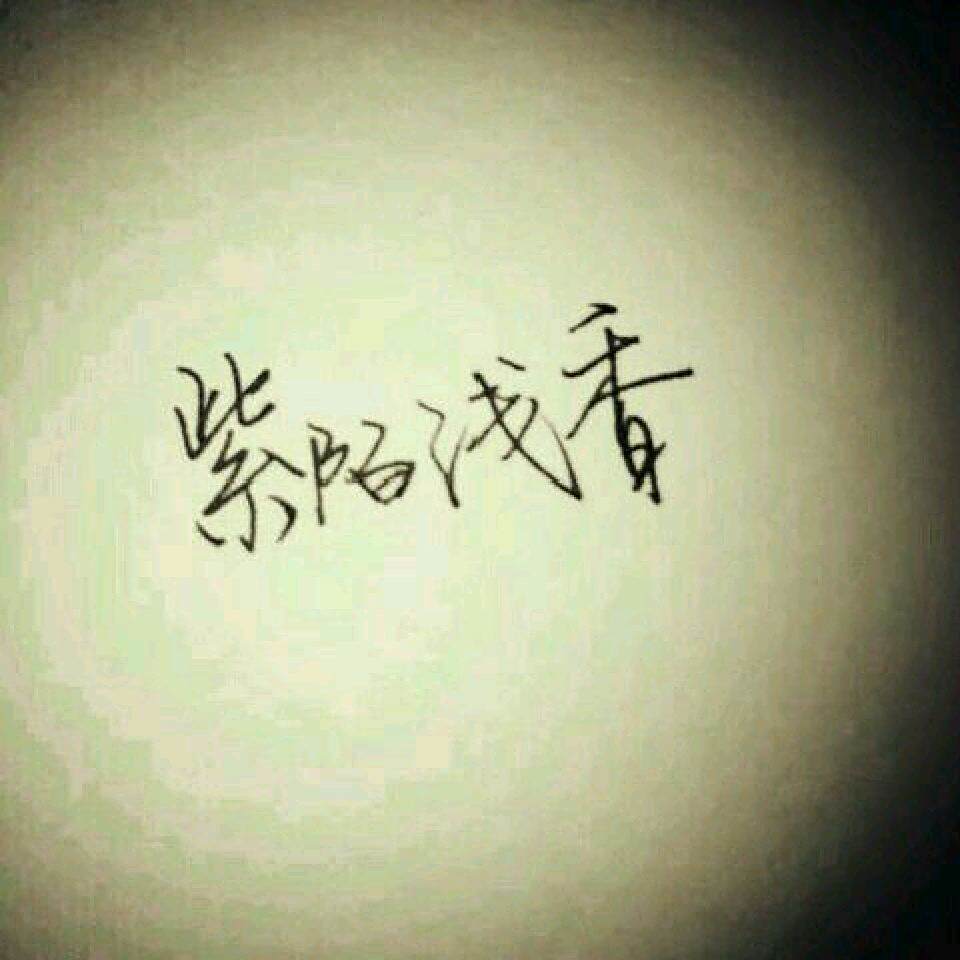 紫陌浅香